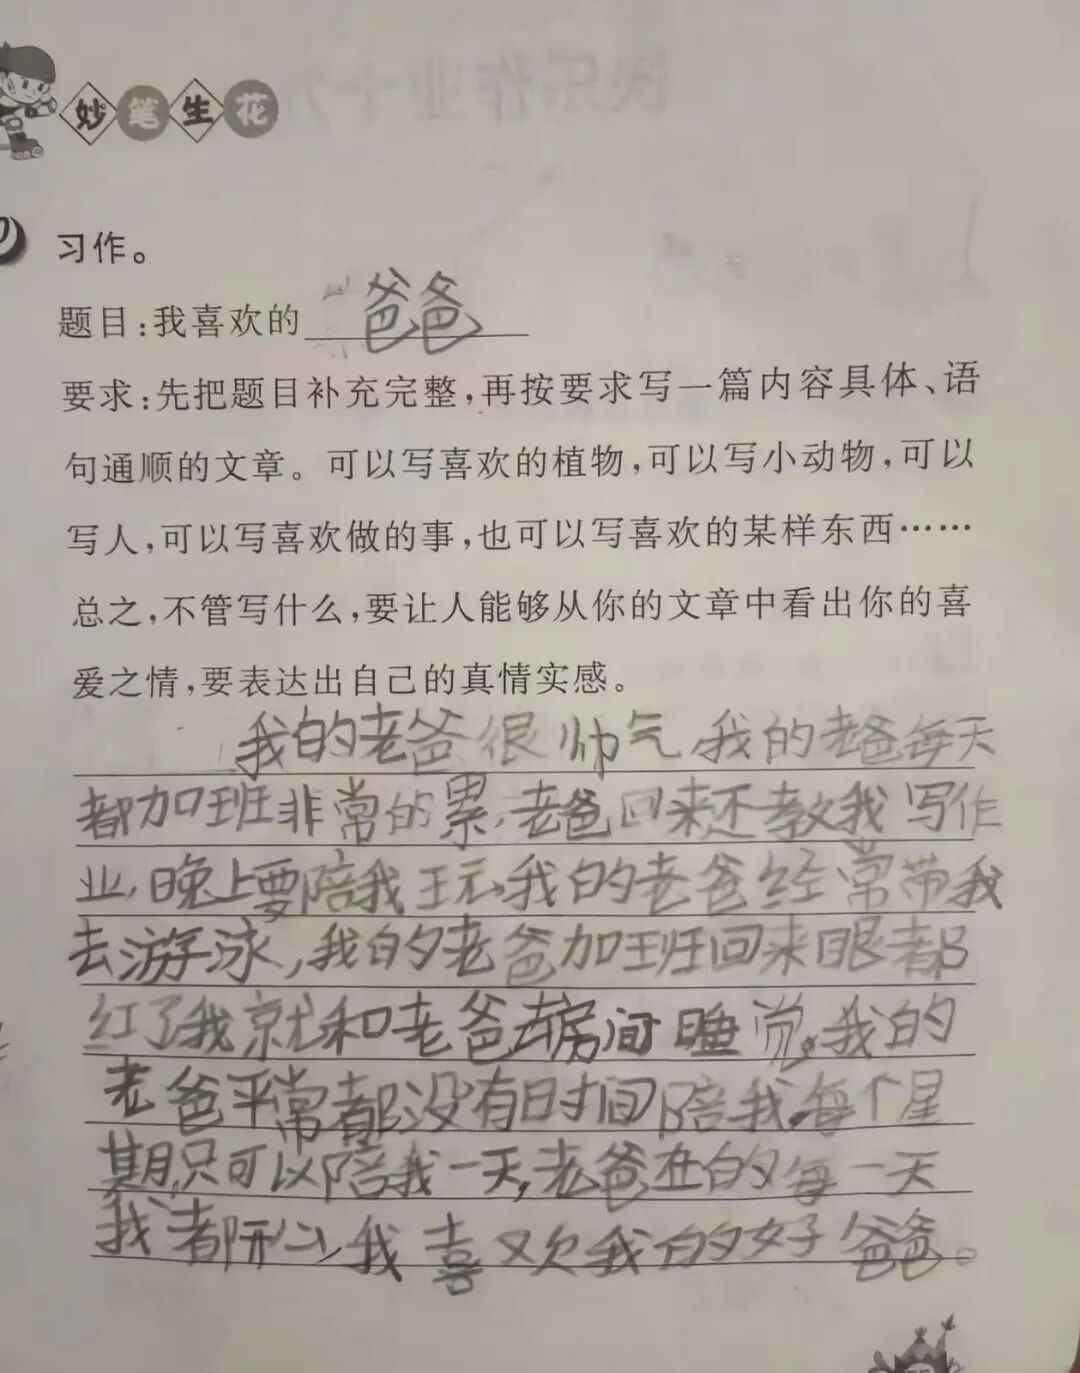 妙笔生花
习作。
题目:我喜欢的 爸爸
要求:先把题目补充完整,再按要求写一篇内容具体、语
句通顺的文章。可以写喜欢的植物,可以写小动物,可以
写人,可以写喜欢做的事,也可以写喜欢的某样东西……
总之,不管写什么,要让人能够从你的文章中看出你的喜
爱之情,要表达出自己的真情实感。
我的老爸很帅气,我的老爸每天
都加班非常的累,老爸回来还教我写作
业,晚上要陪我玩,我的老爸经常带我
去游泳,我的老爸加班回来眼都
红了我就和老爸去房间睡觉,我的
老爸平常都没有时间陪我,每个星
期,只可以陪我一天,老爸在的每一天
我都开心,我喜欢我的好爸爸。